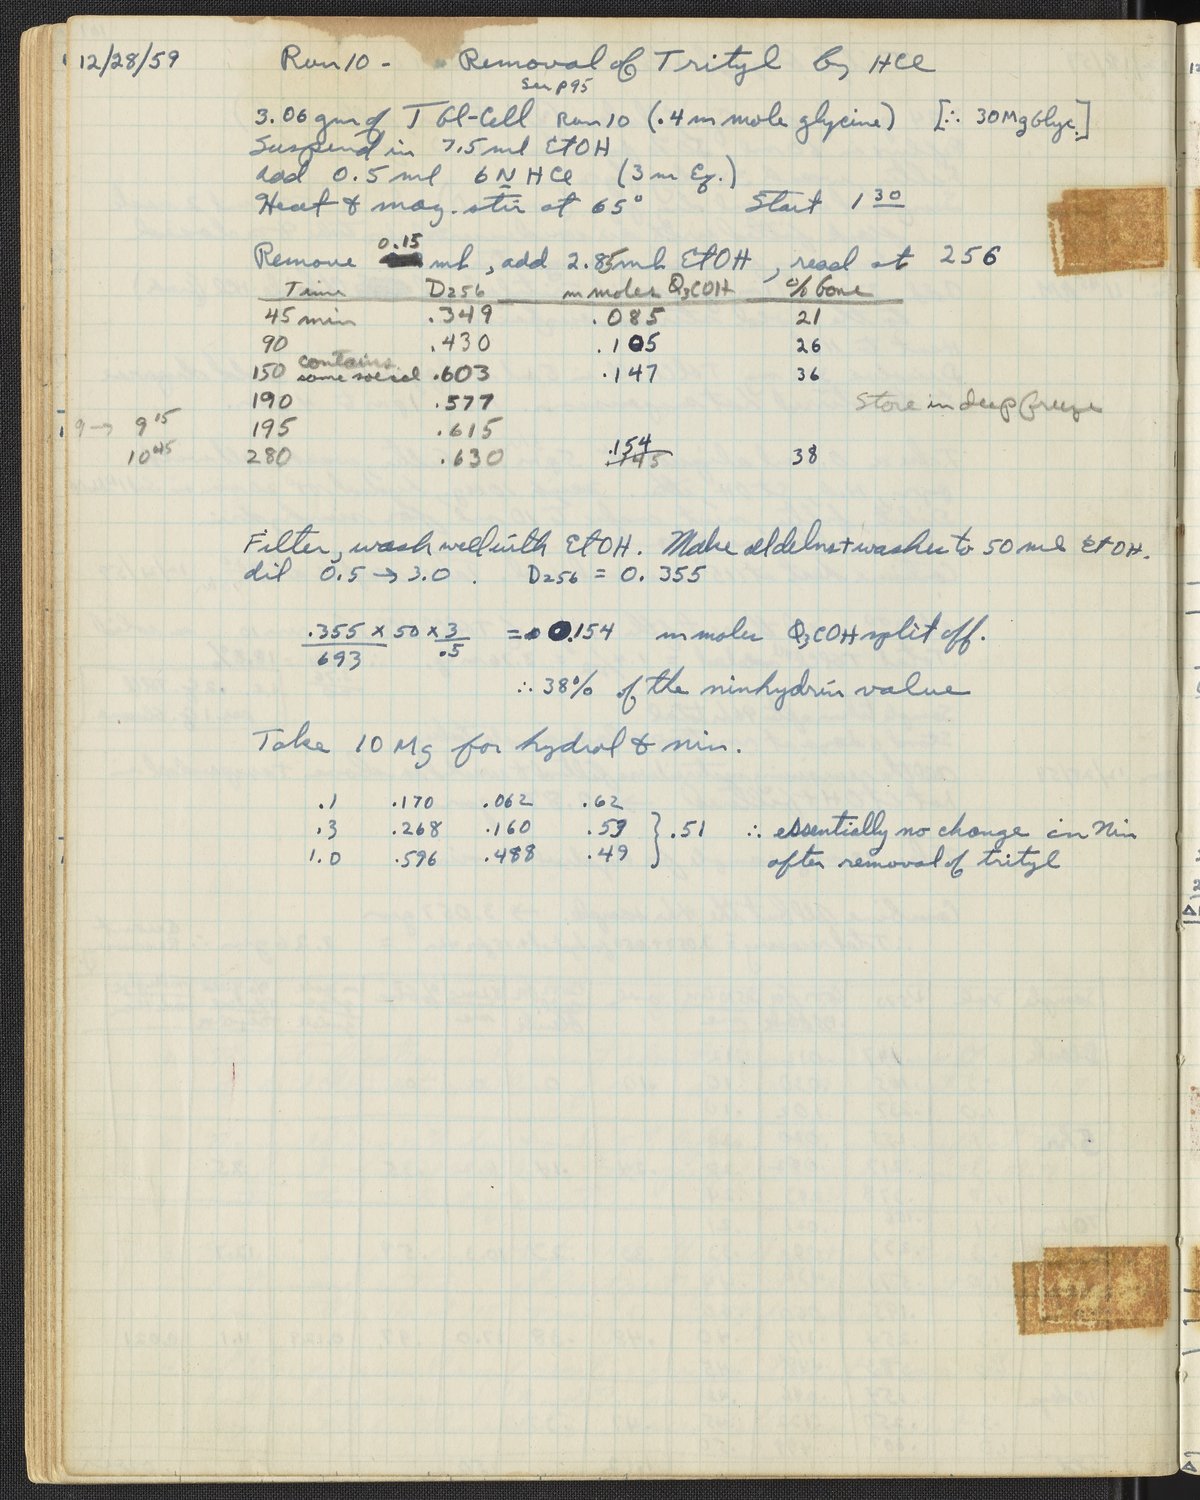 12/28/59 Run 10 - Removal of Trityl by HCl
See p 95
3.06 gm of T Gl-Cell Run 10 (.4 m mole glycine) [∴ 30 Mg Glyc.]
Suspend in 7.5 ml EtOH
add 0.5 ml 6 N HCl (3 m Eq.)
Heat & mag. stir at 65° Start 1 30
0.15
Remove ml, add 2.85 ml EtOH, read at 256
Time D256 m moles Φ3COH % Gone
45 min .349 .085 21
90 .430 .105 26
150 contains some solid .603 .147 36
190 .577
Store in deep freeze
9 → 9 15 195 .615
10 45 280 .630 .154 .145 38
Filter, wash well with EtOH. Make washes to 50 ml EtOH.
dil 0.5 → 3.0. D256 = 0.355
.355 x 50 x 3 = 0.154 m moles Φ3COH split off.
693 .5
∴ 38% of the ninhydrin value
Take 10 Mg for hydrol & nin.
.1 .170 .062 .62
.3 .268 .160 .53 } .51 ∴ essentially no change in Nin
1.0 .596 .488 .49 after removal of trityl